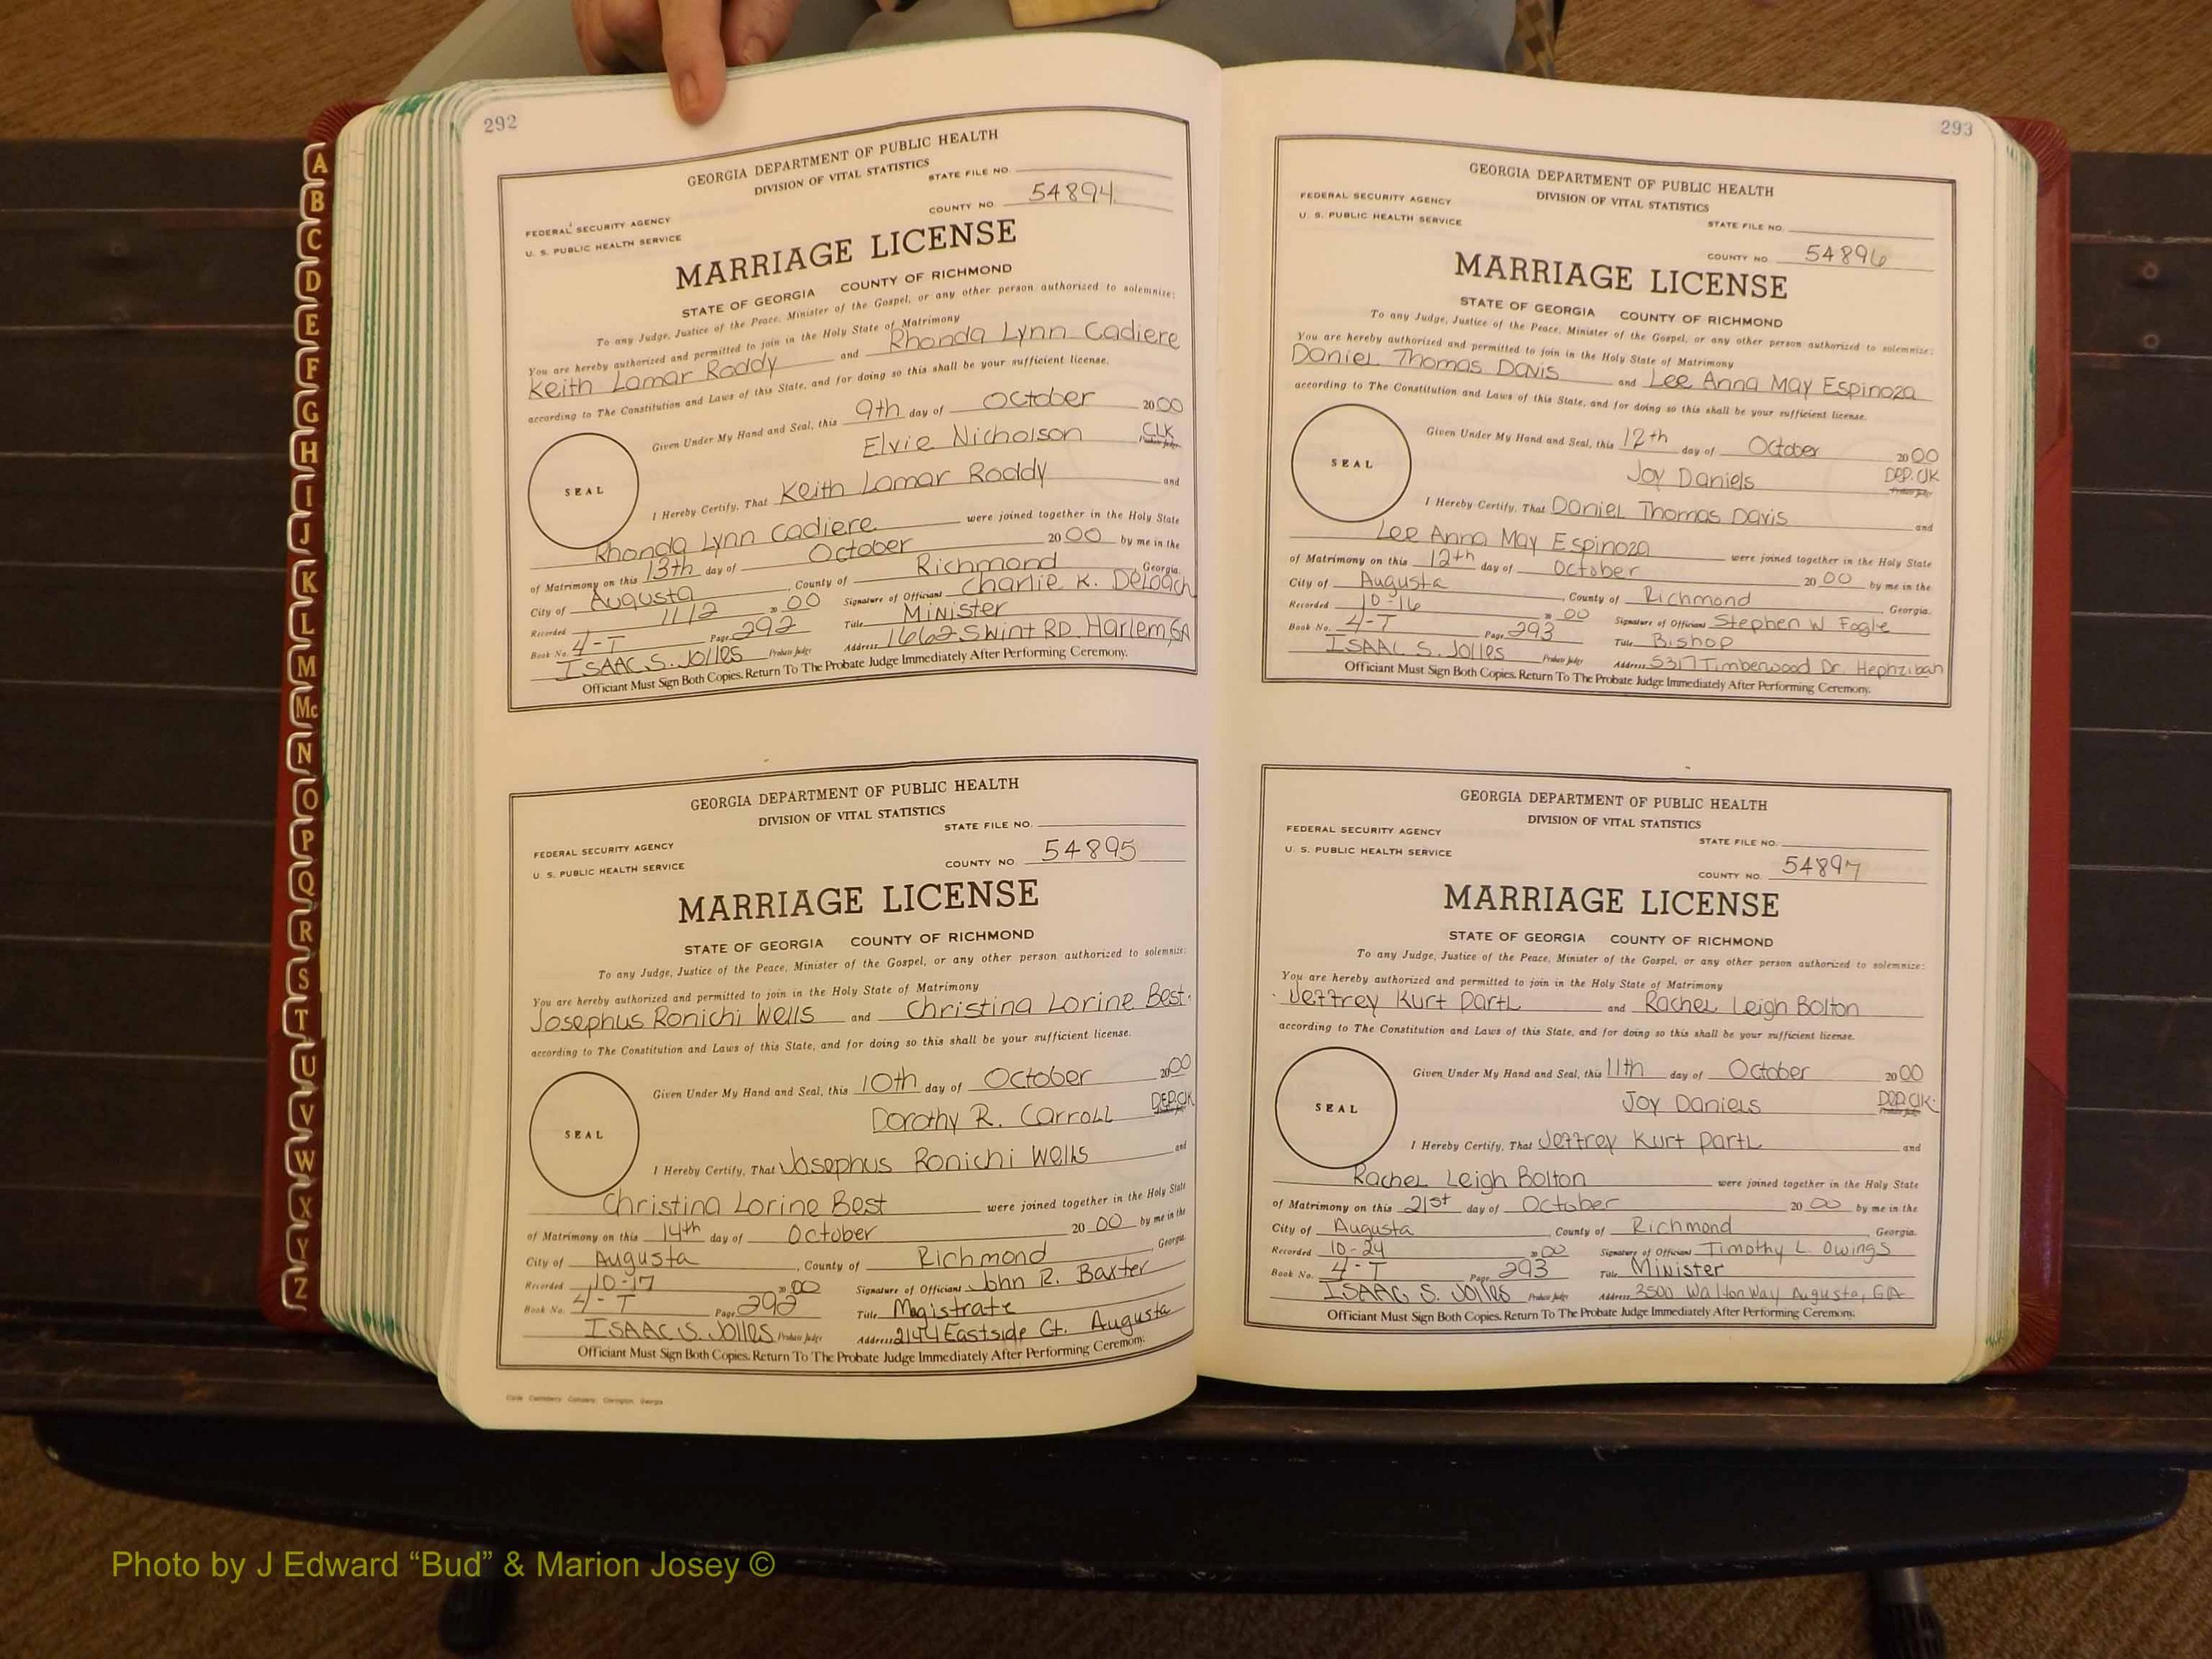 292
GEORGIA DEPARTMENT OF PUBLIC HEALTH
DIVISION OF VITAL STATISTICS
STATE FILE NO.
FEDERAL SECURITY AGENCY
COUNTY NO. 54894
U. S. PUBLIC HEALTH SERVICE
MARRIAGE LICENSE
STATE OF GEORGIA COUNTY OF RICHMOND
To any Judge, Justice of the Peace, Minister of the Gospel, or any other person authorized to solemnize:
You are hereby authorized and permitted to join in the Holy State of Matrimony
Keith Lamar Roddy and Rhonda Lynn Cadiere
according to The Constitution and Laws of this State, and for doing so this shall be your sufficient license.
Given Under My Hand and Seal, this 9th day of October 2000
Elvie Nicholson CLK
Probate Judge
SEAL
I Hereby Certify, That Keith Lamar Roddy and
Rhonda Lynn Cadiere were joined together in the Holy State
of Matrimony on this 13th day of October 2000 by me in the
City of Augusta, County of Richmond Georgia.
Recorded 11/2 2000 Signature of Officiant Charlie K. DeLoach
Book No. 4-T Page 292 Title Minister
ISAAC S. Jolles Probate Judge Address 1662 Swint RD. Harlem, GA
Officiant Must Sign Both Copies. Return To The Probate Judge Immediately After Performing Ceremony.
GEORGIA DEPARTMENT OF PUBLIC HEALTH
DIVISION OF VITAL STATISTICS
STATE FILE NO.
FEDERAL SECURITY AGENCY
COUNTY NO. 54895
U. S. PUBLIC HEALTH SERVICE
MARRIAGE LICENSE
STATE OF GEORGIA COUNTY OF RICHMOND
To any Judge, Justice of the Peace, Minister of the Gospel, or any other person authorized to solemnize:
You are hereby authorized and permitted to join in the Holy State of Matrimony
Josephus Ronichi Wells and Christina Lorine Best
according to The Constitution and Laws of this State, and for doing so this shall be your sufficient license.
Given Under My Hand and Seal, this 10th day of October 2000
Dorothy R. Carroll DEP.CLK
SEAL
I Hereby Certify, That Josephus Ronichi Wells and
Christina Lorine Best were joined together in the Holy State
of Matrimony on this 14th day of October 2000 by me in the
City of Augusta, County of Richmond, Georgia.
Recorded 10-17 2000 Signature of Officiant John R. Baxter
Book No. 4-T Page 292 Title Magistrate
ISAAC S. Jolles Probate Judge Address 2144 Eastside Ct. Augusta
Officiant Must Sign Both Copies. Return To The Probate Judge Immediately After Performing Ceremony.
293
GEORGIA DEPARTMENT OF PUBLIC HEALTH
DIVISION OF VITAL STATISTICS
FEDERAL SECURITY AGENCY
U. S. PUBLIC HEALTH SERVICE
STATE FILE NO.
COUNTY NO. 54896
MARRIAGE LICENSE
STATE OF GEORGIA COUNTY OF RICHMOND
To any Judge, Justice of the Peace, Minister of the Gospel, or any other person authorized to solemnize:
You are hereby authorized and permitted to join in the Holy State of Matrimony
Daniel Thomas Davis and Lee Anna May Espinoza
according to The Constitution and Laws of this State, and for doing so this shall be your sufficient license.
Given Under My Hand and Seal, this 12th day of October 2000
Joy Daniels DEP. CLK
Probate Judge
SEAL
I Hereby Certify, That Daniel Thomas Davis and
Lee Anna May Espinoza were joined together in the Holy State
of Matrimony on this 12th day of October 2000 by me in the
City of Augusta, County of Richmond, Georgia.
Recorded 10-16 2000 Signature of Officiant Stephen W Fogle
Book No. 4-T Page 293 Title Bishop
ISAAC S. Jolles Probate Judge Address 5317 Timberwood Dr. Hephzibah
Officiant Must Sign Both Copies. Return To The Probate Judge Immediately After Performing Ceremony.
GEORGIA DEPARTMENT OF PUBLIC HEALTH
DIVISION OF VITAL STATISTICS
FEDERAL SECURITY AGENCY
U. S. PUBLIC HEALTH SERVICE
STATE FILE NO.
COUNTY NO. 54897
MARRIAGE LICENSE
STATE OF GEORGIA COUNTY OF RICHMOND
To any Judge, Justice of the Peace, Minister of the Gospel, or any other person authorized to solemnize:
You are hereby authorized and permitted to join in the Holy State of Matrimony
Jeffrey Kurt Partl and Rachel Leigh Bolton
according to The Constitution and Laws of this State, and for doing so this shall be your sufficient license.
Given Under My Hand and Seal, this 11th day of October 2000
Joy Daniels DEP. CLK.
Probate Judge
SEAL
I Hereby Certify, That Jeffrey Kurt Partl and
Rachel Leigh Bolton were joined together in the Holy State
of Matrimony on this 21st day of October 2000 by me in the
City of Augusta, County of Richmond, Georgia.
Recorded 10-24 2000 Signature of Officiant Timothy L. Owings
Book No. 4-T Page 293 Title Minister
ISAAC S. Jolles Probate Judge Address 3500 Walton Way Augusta, GA
Officiant Must Sign Both Copies. Return To The Probate Judge Immediately After Performing Ceremony.
A
B
C
D
E
F
G
H
I
J
K
L
M
Mc
N
O
P
Q
R
S
T
U
V
W
X
Y
Z
Photo by J Edward “Bud” & Marion Josey ©